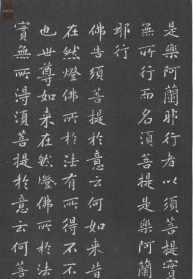 是樂阿蘭那行者以須菩提實
無所行而名須菩提是樂阿蘭
那行
佛告須菩提於意云何如來昔
在然燈佛所於法有所得不不
也世尊如來在然燈佛所於法
實無所得須菩提於意云何菩